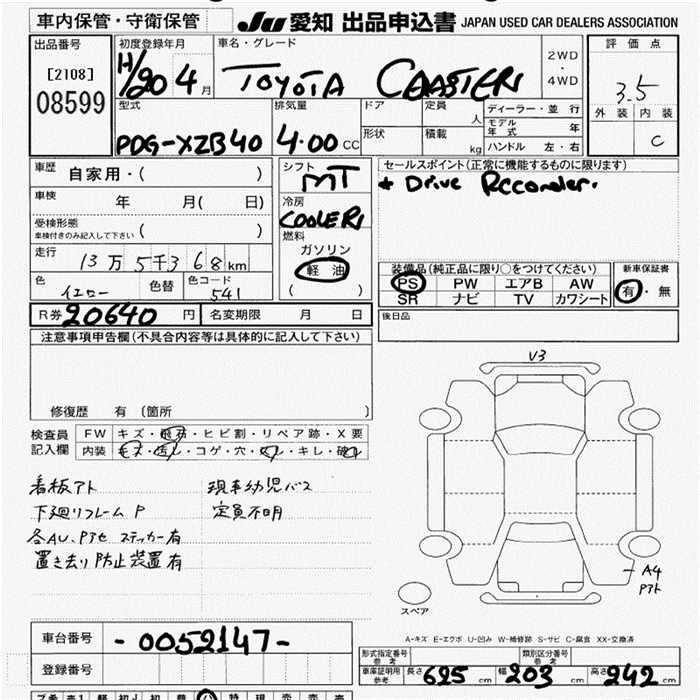 車内保管・守衛保管 JU 愛知 出品申込書 JAPAN USED CAR DEALERS ASSOCIATION
出品番号 [2108] 08599
初度登録年月 H/20 4月
車名・グレード TOYOTA COASTER
2WD・4WD
評価点 3.5
外装 内装 C
型式 PDG-XZB40
排気量 4.00 CC
ドア 定員 人
形状 積載 kg
ディーラー・並行
モデル年式 年
ハンドル 左・右
車歴 自家用・( )
車検 年 月( 日)
受検形態
車検付きのみ記入して下さい ( )
走行 13万5千368km
色 イエロー 色替 色コード 541
シフト MT
冷房 COOLER
燃料
ガソリン
軽油
( )
セールスポイント(正常に機能するものに限ります)
+ Drive Recorder.
装備品(純正品に限り○をつけてください)
PS PW エアB AW
SR ナビ TV カワシート
新車保証書
有・無
R券 20640 円 名変期限 月 日
後日品
注意事項申告欄(不具合内容等は具体的に記入して下さい)
修復歴 有 〔箇所 〕
検査員記入欄
FW キズ・飛石・ヒビ割・リペア跡・X要
内装 キズ・汚レ・コゲ・穴・・キレ・破レ
看板アト 現車幼児バス
下廻リフレーム P 定員不明
各AU、Pアセ ステッカー有
置き去り防止装置有
V3
A4
Pアト
スペア
A-キズ E-エクボ U-凹み W-補修跡 S-サビ C-腐食 XX-交換済
車台番号 -0052147-
登録番号
形式指定番号 参考 類別区分番号 参考
車庫証明用 参考 長さ 625 cm 幅 203 cm 高さ 242 cm